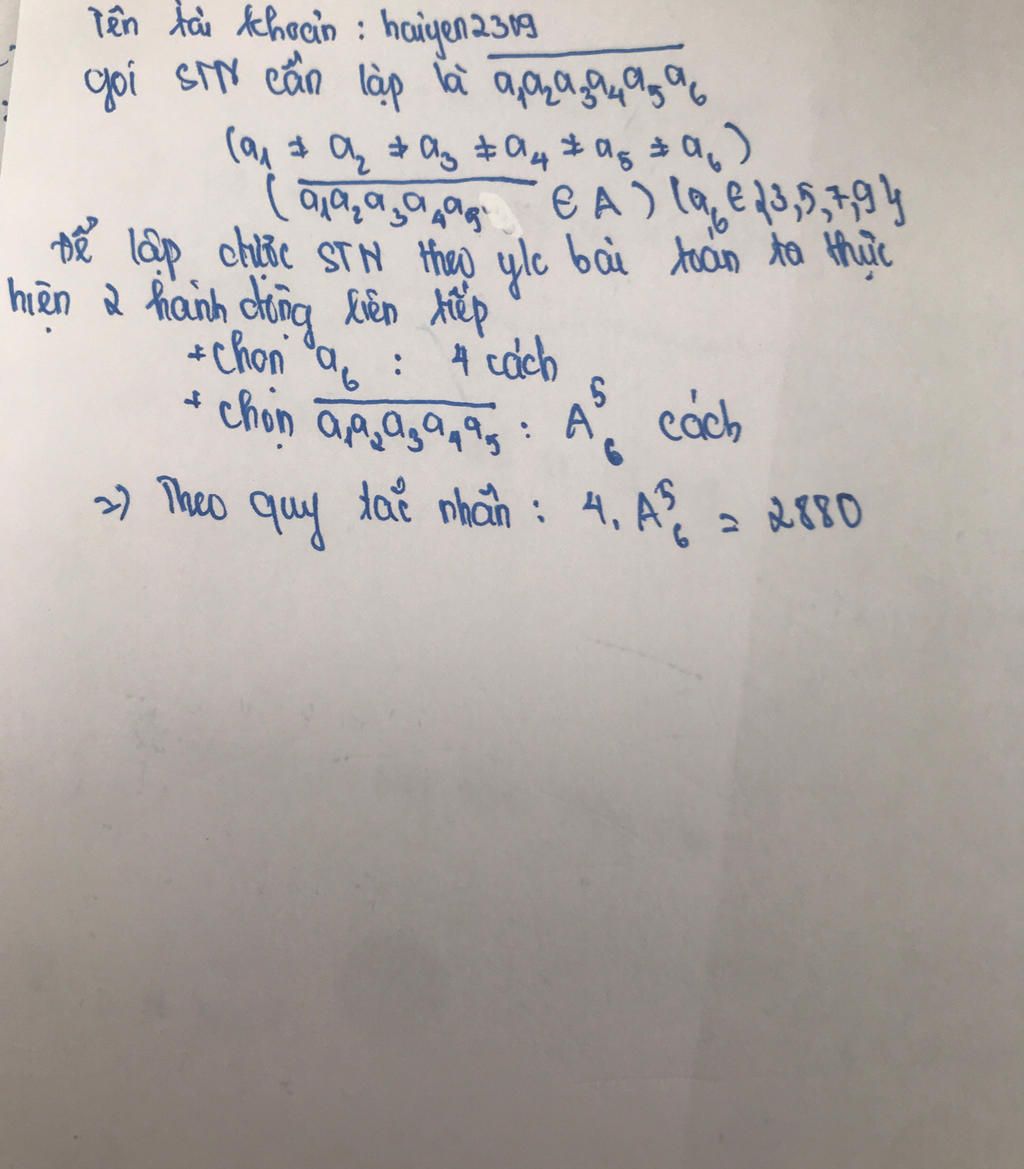 Tên tài khoản : haiyen2309
gọi STN cần lập là a₁a₂a₃a₄a₅a₆
(a₁ ≠ a₂ ≠ a₃ ≠ a₄ ≠ a₅ ≠ a₆)
(a₁a₂a₃a₄a₅ ∈ A) (a₆ ∈ {3,5,7,9}
Để lập được STN theo y/c bài toán ta thực
hiện 2 hành động liên tiếp
+ chọn a₆ : 4 cách
+ chọn a₁a₂a₃a₄a₅ : A⁵₆ cách
=) Theo quy tắc nhân : 4. A⁵₆ = 2880